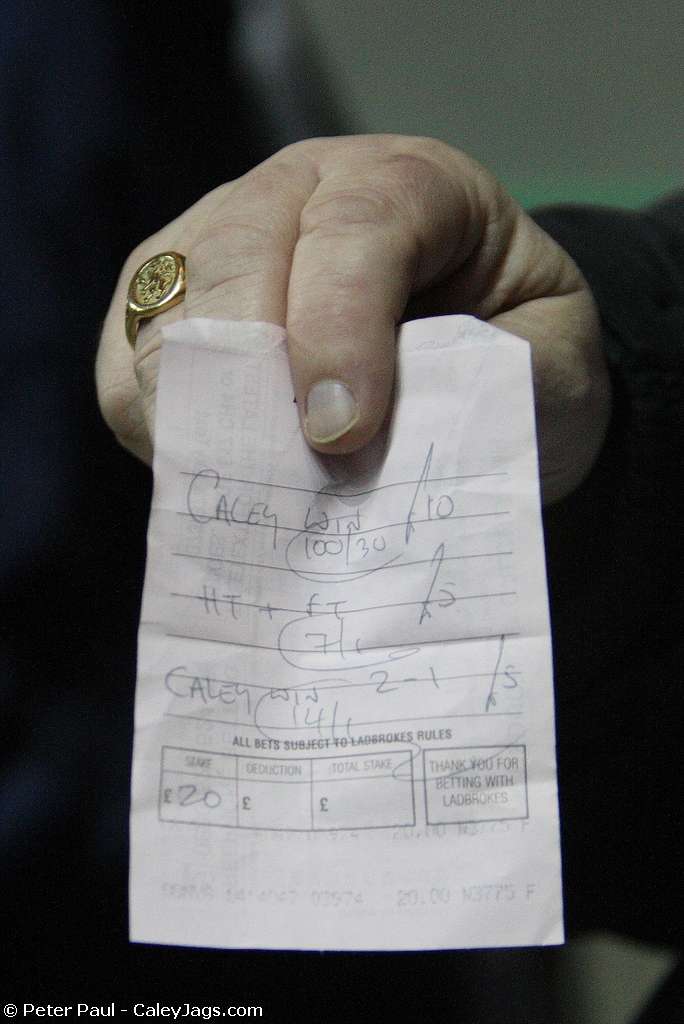 CALEY WIN £10
100/30
HT + FT £5
7/1
CALEY WIN 2-1 £5
14/1
ALL BETS SUBJECT TO LADBROKES RULES
STAKE DEDUCTION TOTAL STAKE
£20 £ £
THANK YOU FOR
BETTING WITH
LADBROKES
20.00 N3775 F
03974 20.00 N3775 F
© Peter Paul - CaleyJags.com